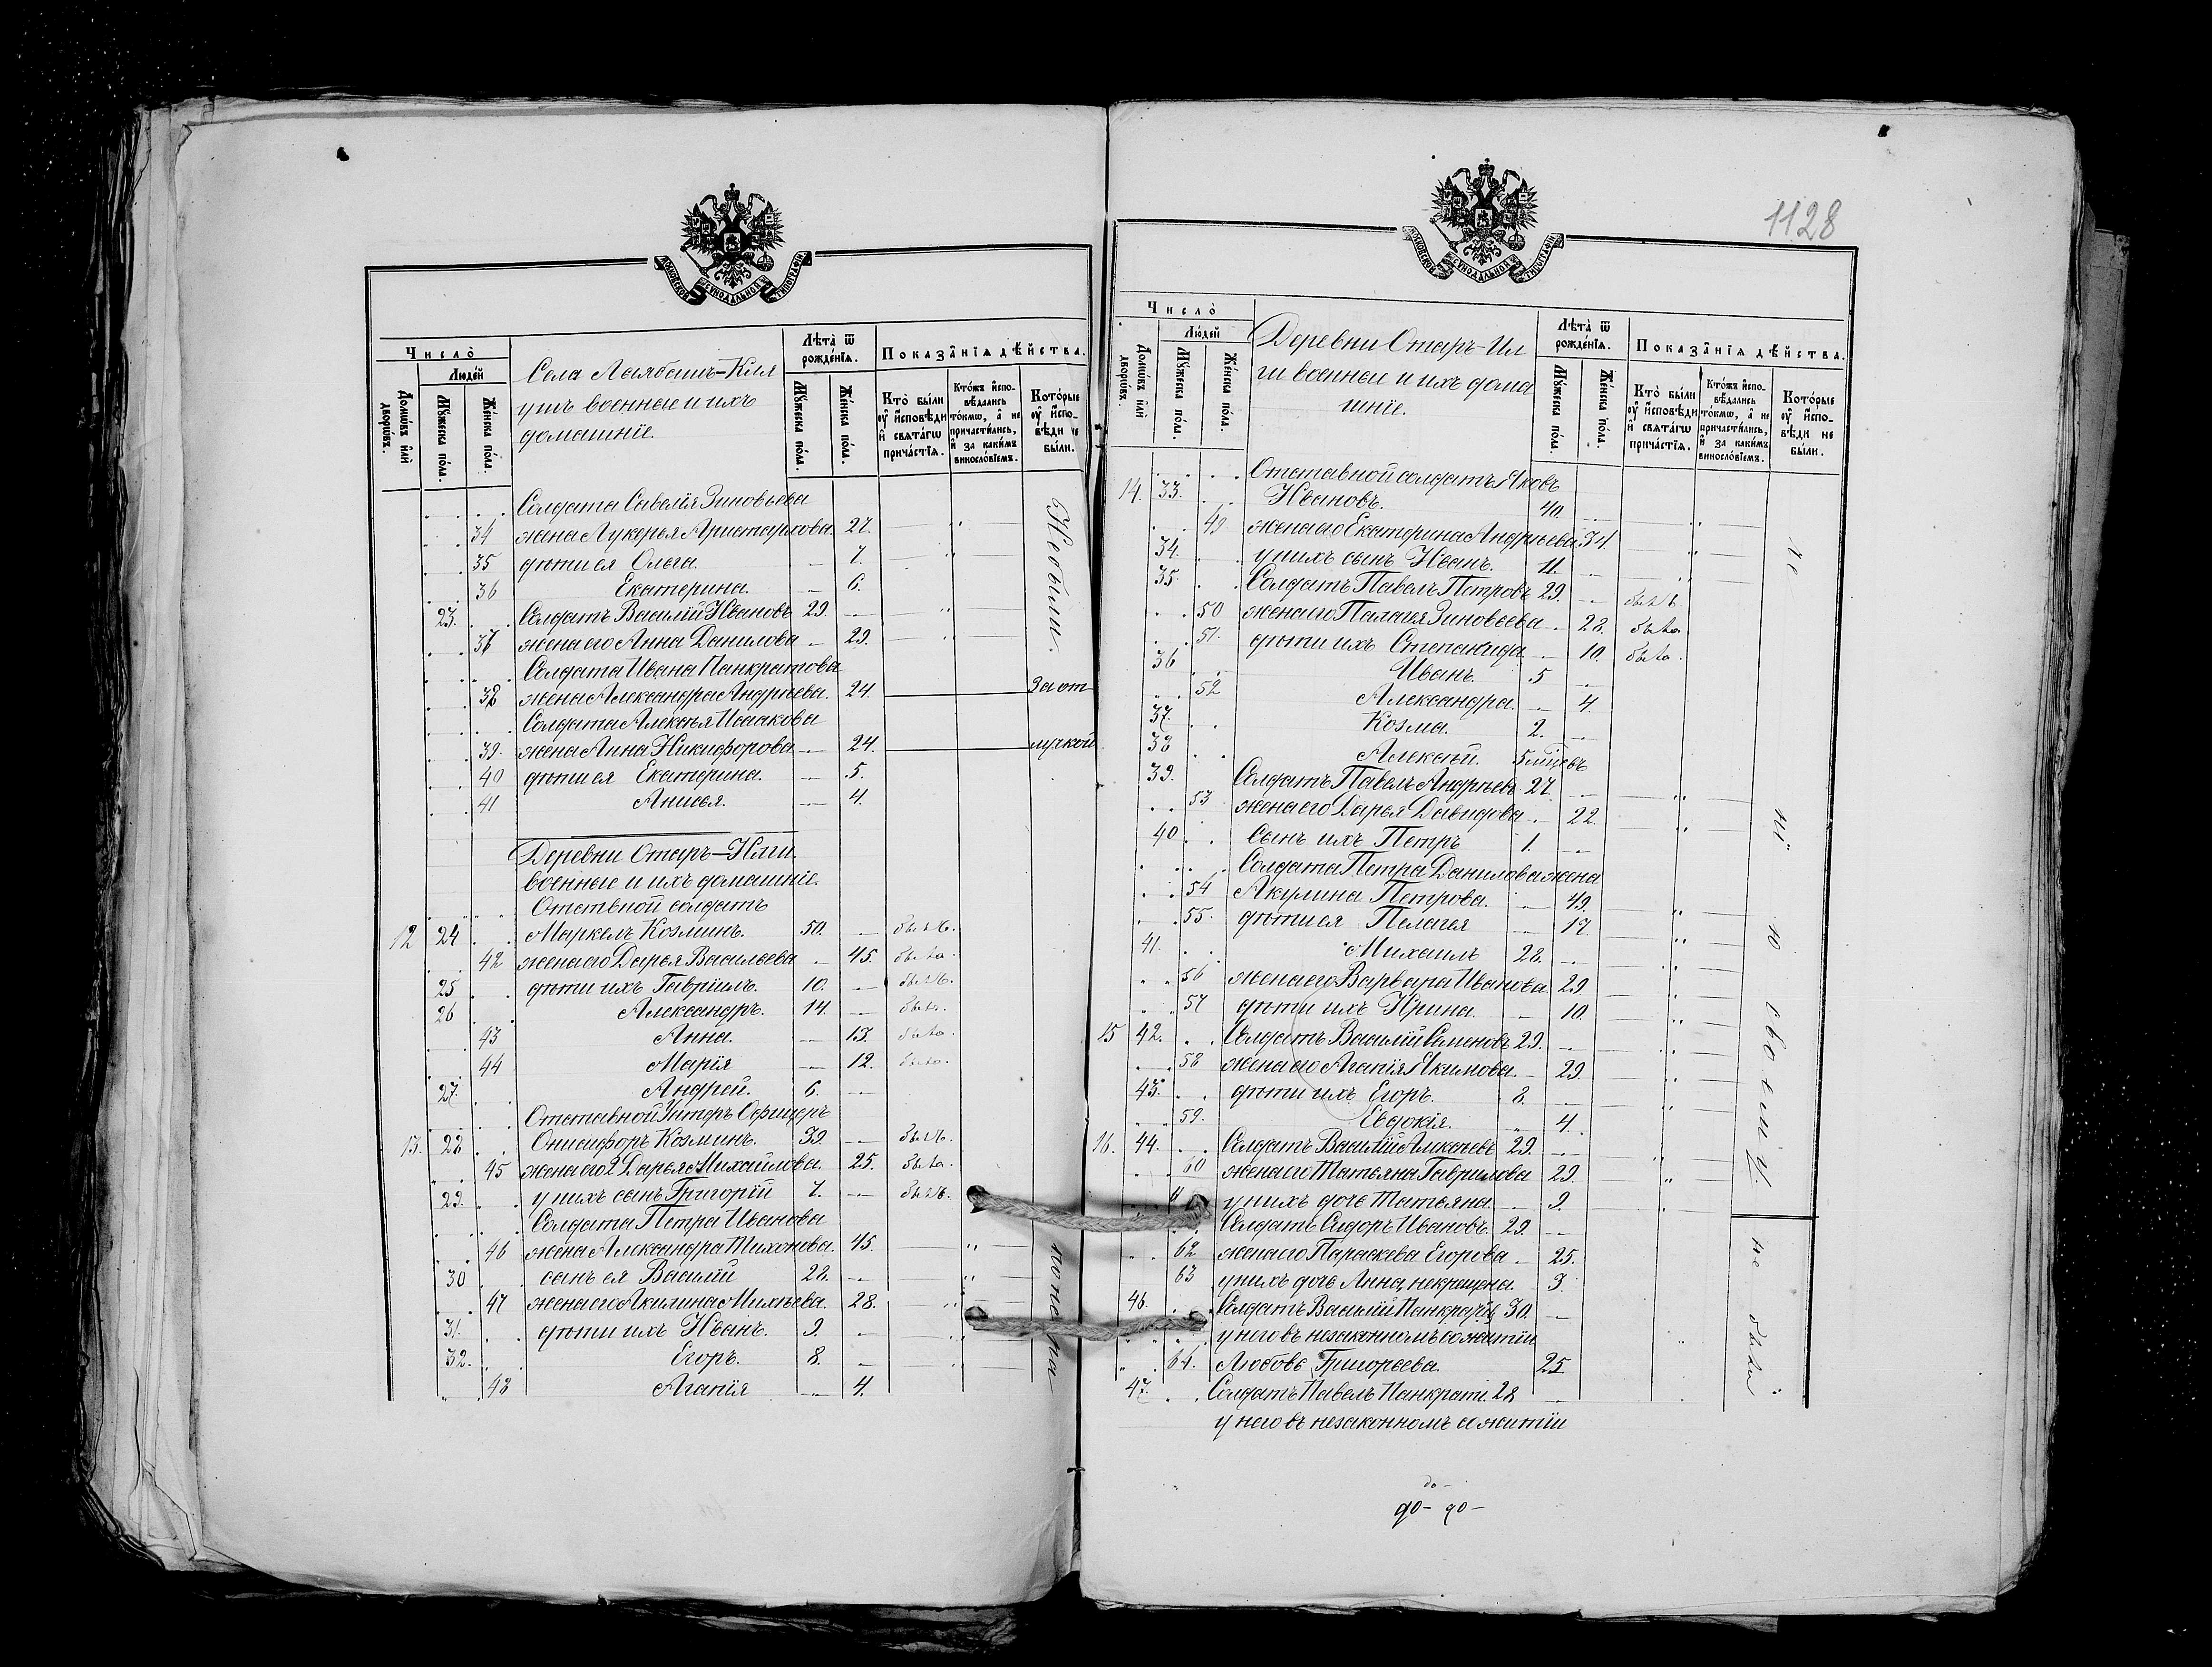 МОСКОВСКОЙ СѴНОДАЛЬНОЙ ТИПОГРАФІИ
Число̀
Люде́й
Домѡ́въ и҆лѝ дворѡ́въ.
Мꙋ́жеска по́ла.
Же́нска по́ла.
Села
ушъ военные и ихъ
домашніе.
Лѣта̀ ѿ рожде́нїѧ.
Мꙋ́жеска по́ла.
Же́нска по́ла.
Показа̑нїѧ дѣ́йства.
Кто̀ бы́ли оу҆ и҆сповѣ́ди и҆ свѧта́гѡ прича́стїѧ.
Кто́жъ и҆спо-вѣ́дались то́кмѡ, а҆ не причасти́лись, и҆ за каки́мъ винословїемъ.
Кото́рые оу҆ и҆спо-вѣ́ди не бы́ли.
Солдата Савелія Зиновьева
34 жена Лукерья Аристархова. 27. — „ —
35 дѣти ея Ольга. — 7. — „ —
36 Екатерина. — 6.
23. Солдатъ Василій Ивановъ 29. — „ —
37 жена его Анна Данилова — 29. — „ —
Небыли.
Солдата Ивана Панкратова
38 жена Александра Андрѣева. 24. За от-
Солдата Алексѣя Исаакова
39. жена Анна Никифорова — 24. лучкой
40 дѣти ея Екатерина. — 5.
41 Анисья. — 4.
Деревни Отаръ-Илги
военные и ихъ домашніе.
Отствной солдатъ
12 24 Маркелъ Козминъ. 50. — былъ.
42 жена его Дарья Васильева — 45. была.
25 дѣти ихъ Гавріилъ. 10. — былъ.
26 Александръ. 14. — былъ.
43 Анна. — 13. была.
44 Марія — 12. была.
27. Андрей. 6. —
Отставной Унтеръ Офицеръ
13. 28 Онисифоръ Козминъ. 39. — былъ.
45 жена его 2 Дарья Михайлова. 25. была.
29. у нихъ сынъ Григорій 7. — былъ.
Солдата Петра Иванова
46 жена Александра Тихонова. 45. — „ —
30 сынъ ея Василій 28. — „ —
47 жена его Акилина Михѣева. 28. — „ —
31. дѣти ихъ Иванъ. 9. — „ —
32. Егоръ. 8. — „ —
48 Агапія — 4.
1128
МОСКОВСКОЙ СѴНОДАЛЬНОЙ ТИПОГРАФІИ
Число̀
Люде́й
Домѡ́въ и҆лѝ дворѡ́въ.
Мꙋ́жеска по́ла.
Же́нска по́ла.
Деревни Отаръ-Ил
ги военные и ихъ дома
шніе.
Лѣта̀ ѿ рожде́нїѧ.
Мꙋ́жеска по́ла.
Же́нска по́ла.
Показа̑нїѧ дѣ́йства.
Кто̀ бы́ли оу҆ и҆сповѣ́ди и҆ свѧта́гѡ прича́стїѧ.
Кто́жъ и҆спо-вѣ́дались то́кмѡ, а҆ не причасти́лись, и҆ за каки́мъ винословїемъ.
Кото́рые оу҆ и҆спо-вѣ́ди не бы́ли.
Отставной солдатъ Яковъ
14. 33. Ивановъ. 40. — „ —
49 жена его Екатерина Андрѣева. 34. — „ —
34. у нихъ сынъ Иванъ. 11. — „ —
35. Солдатъ Павелъ Петровъ 29. — былъ.
50 жена его Палагея Зиновьева — 28. была.
51. дѣти ихъ Степанида — 10. была.
36 Иванъ. 5 —
52 Александра. — 4.
37. Козма. 2. —
38 Алексѣй. 5 мѣсяцевъ
39. Солдатъ Павелъ Андрѣевъ 27. — „ —
53 жена его Дарья Давидова — 22. — „ —
40. сынъ ихъ Петръ 1. —
Солдата Петра Данилова жена
54 Акулина Петрова. — 49. — „ —
55. дѣти ея Пелагея — 17. — „ —
41. Михаилъ 28. — „ —
56 жена его Варвара Иванова 29. — „ —
57 дѣти ихъ Ирина. — 10. — „ —
15 42. Солдатъ Василій Семеновъ 29. — „ —
58 жена его Агапія Якимова. — 29. — „ —
43. дѣти ихъ Егоръ. 8. — „ —
59. Евдокія. — 4.
16. 44. Солдатъ Василій Алексѣевъ 29. — „
60 жена его Татьяна Гаврилова 29. „
у нихъ дочь Татьяна. — 9.
Солдатъ Сидоръ Ивановъ. 29. —
62 жена его Параскева Егорова — 25.
63 у нихъ дочь Анна, некрещена. 3.
46. Солдатъ Василій Панкрат. 30. —
у него въ незаконномъ сожитіи
64. Любовь Григорьева. 25
47. Солдатъ Павелъ Панкрат. 28 —
у него въ незаконномъ сожитіи
не были
до-
до- до-